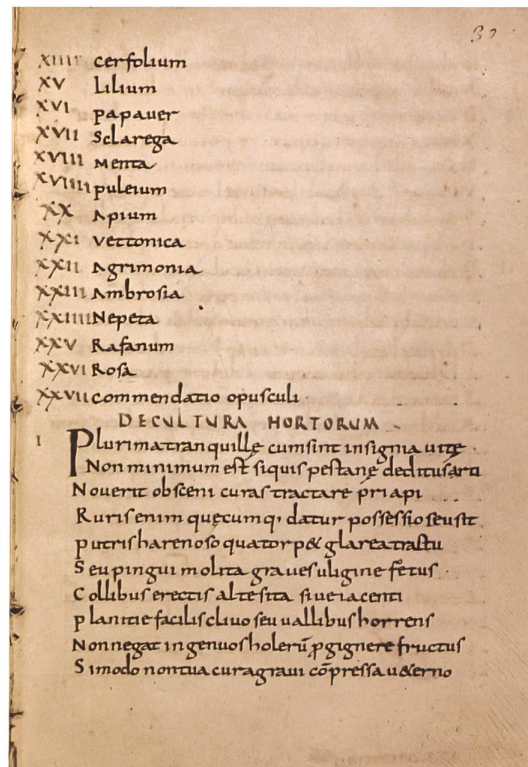 32
XIIII Cerfolium
XV Lilium
XVI papauer
XVII Sclarega
XVIII Menta
XVIIII puleium
XX Apium
XXI Vettonica
XXII Agrimonia
XXIII Ambrosia
XXIIII Nepeta
XXV Rafanum
XXVI Rosa
XXVII Commendatio opusculi.
DE CULTURA HORTORUM
I Plurima tranquillę cum sint insignia uitę
Non minimum est si quis pestanę deditus arti
Nouerit obsceni curas tractare priapi
Ruris enim quęcumq; datur possessio seu sit
putris harenoso qua torp& glarea tractu
Seu pingui molita graues uligine fętus.
Collibus erectis alte sita siue iacenti
planitie facilis cliuo seu uallibus horrens
Non negat ingenuos holerū ꝓgignere fructus
Si modo non tua cura graui cōpressa u&erno